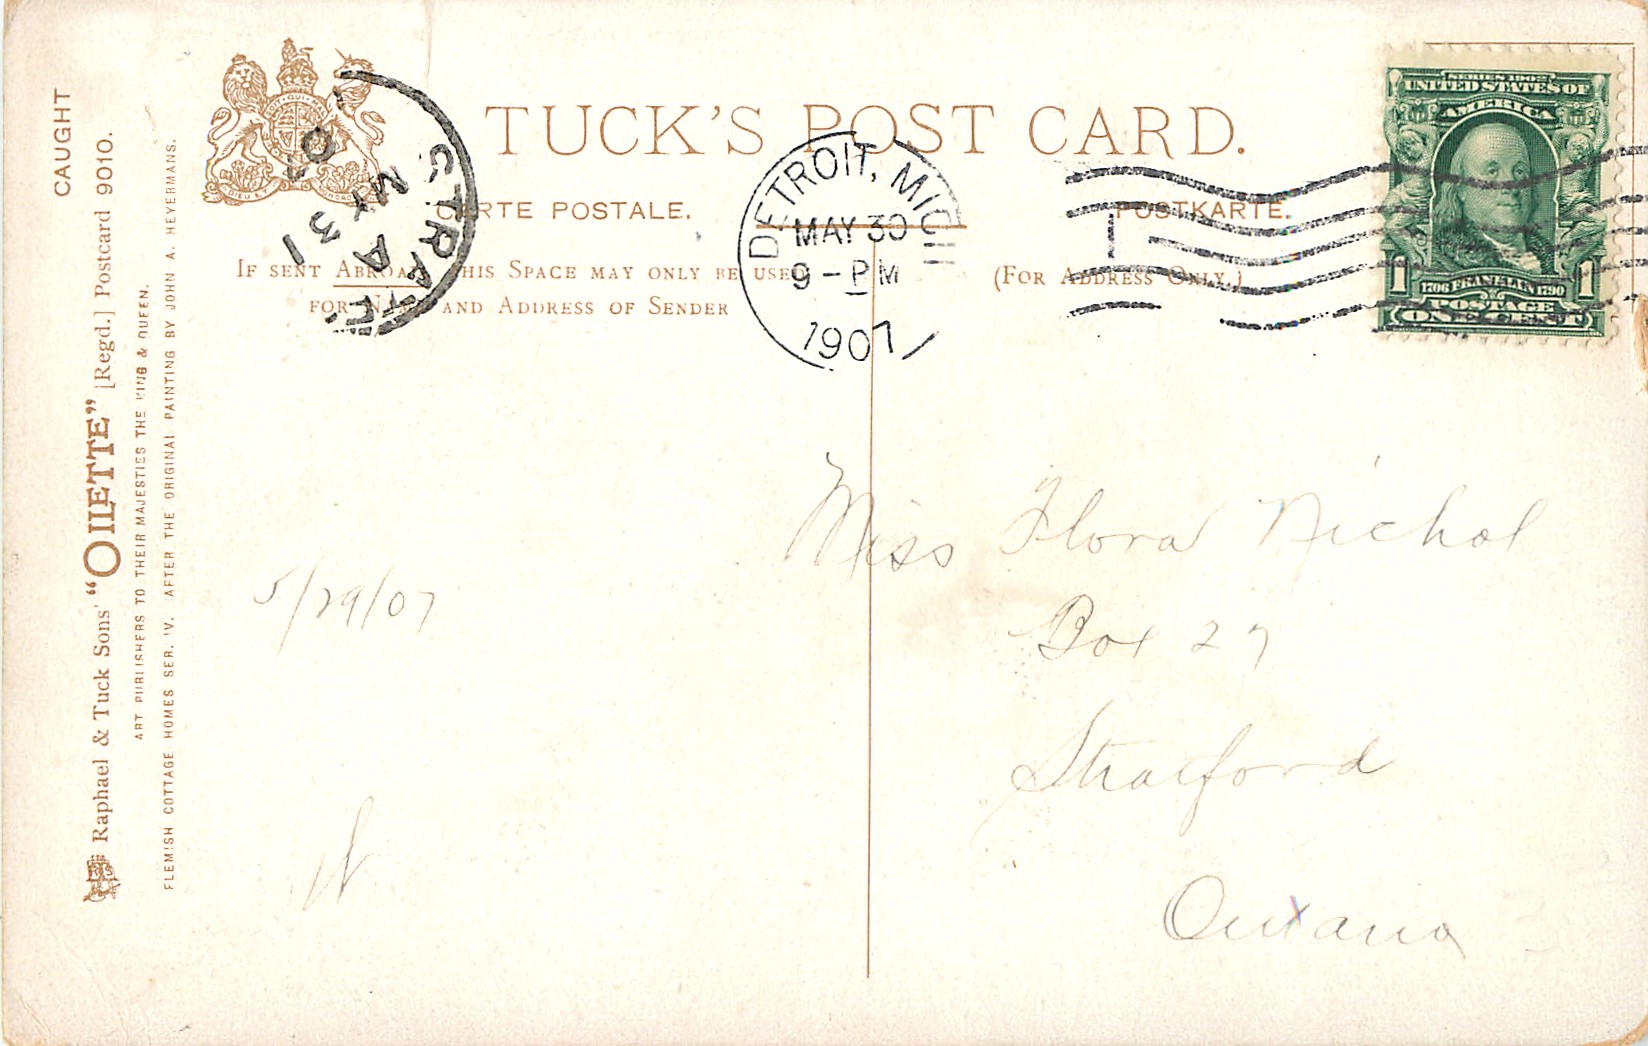 CAUGHT
Raphael & Tuck Sons' “OILETTE” [Regd.] Postcard 9010.
ART PUBLISHERS TO THEIR MAJESTIES THE KING & QUEEN.
FLEMISH COTTAGE HOMES SER. IV. AFTER THE ORIGINAL PAINTING BY JOHN A. HEYERMANS.
TUCK'S POST CARD.
CARTE POSTALE.
POSTKARTE.
IF SENT ABROAD THIS SPACE MAY ONLY BE USED
FOR NAME AND ADDRESS OF SENDER
(FOR ADDRESS ONLY.)
MY 31
07
DETROIT, MICH
MAY 30
9 - PM
1907
1
SERIES 1902
UNITED STATES OF
AMERICA
1706 FRANKLIN 1790
1 1
POSTAGE
ONE CENT
Miss Flora Nichol
Box 27
Stratford
Ontario
5/29/07